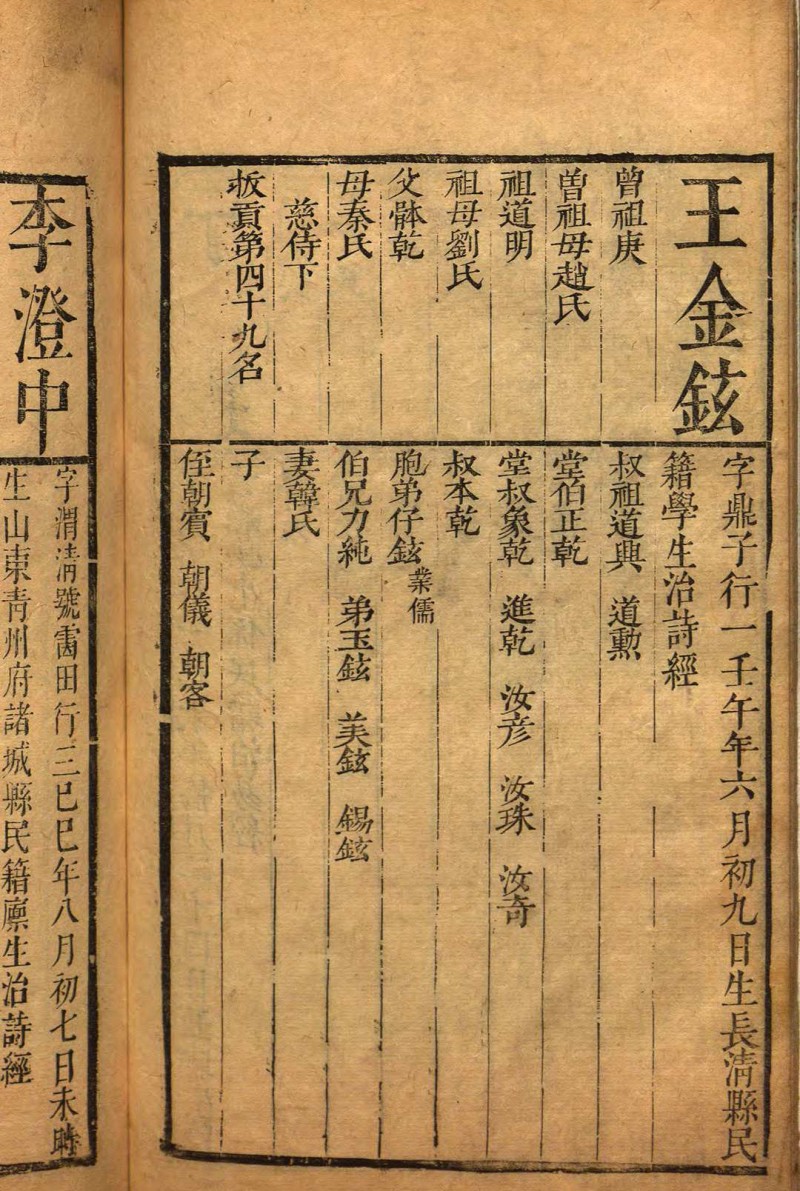 王金鉉
曾祖庚
曽祖母趙氏
祖道明
祖母劉氏
父骵乾
母秦氏
慈侍下
拔貢第四十九名
字鼎子行一壬午年六月初九日生長清縣民
籍學生治詩經
叔祖道興 道勲
堂伯正乾
堂叔象乾 進乾 汝彦 汝珠 汝奇
叔本乾
胞弟仔鉉業儒
伯兄力純 弟玉鉉 美鉉 錫鉉
妻韓氏
子
侄朝賓 朝儀 朝客
李澄中
字渭清號雷田行三己巳年八月初七日未時
生山東青州府諸城縣民籍廪生治詩經